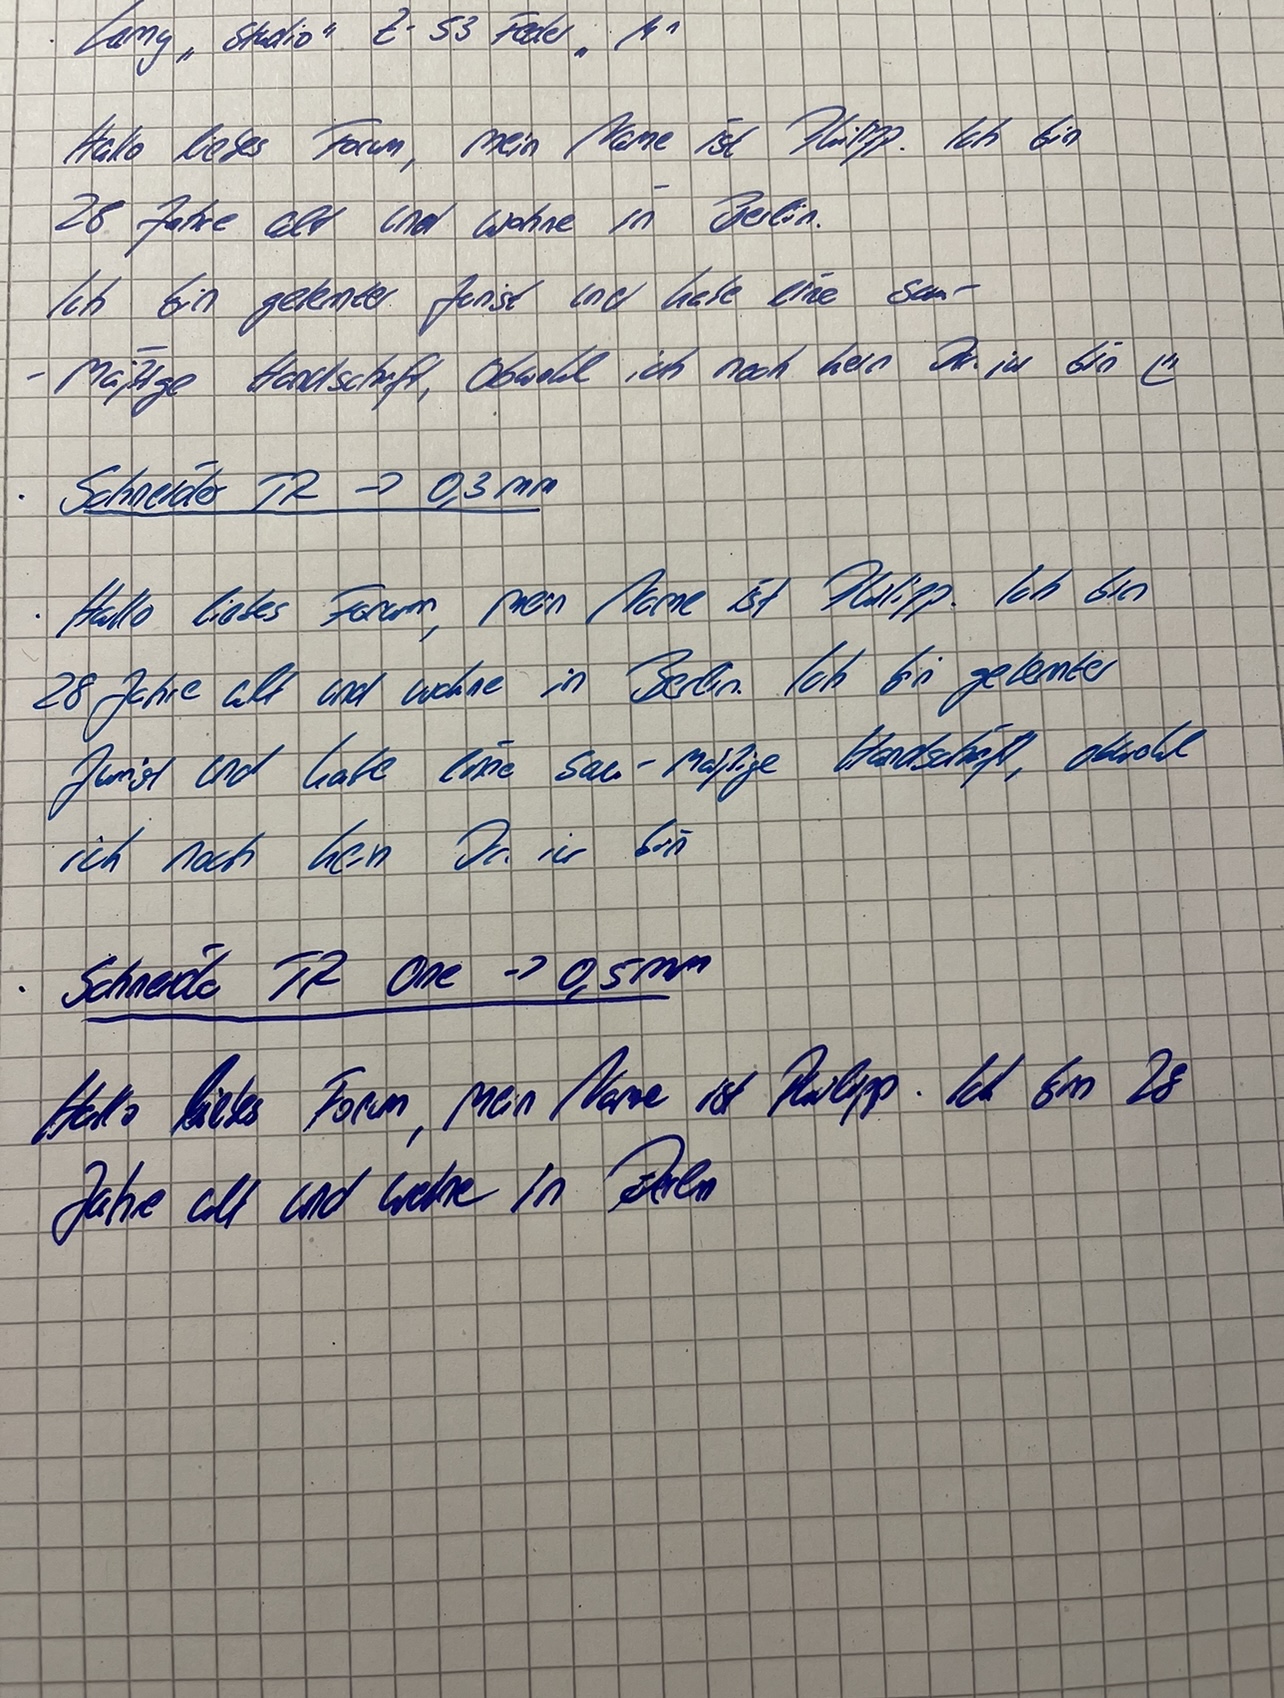 · Lamy „Studio“ Z-53 Feder „M“
Hallo liebes Forum, mein Name ist Philipp. Ich bin
28 Jahre alt und wohne in Berlin.
Ich bin gelernter Jurist und habe eine sau-
- mäßige Handschrift, obwohl ich noch kein Dr. iur bin (:
· Schneider TR → 0,3 mm
· Hallo liebes Forum, mein Name ist Philipp. Ich bin
28 Jahre alt und wohne in Berlin. Ich bin gelernter
Jurist und habe eine sau-mäßige Handschrift, obwohl
ich noch kein Dr. iur bin
· Schneider TR One → 0,5 mm
Hallo liebes Forum, mein Name ist Philipp. Ich bin 28
Jahre alt und wohne in Berlin